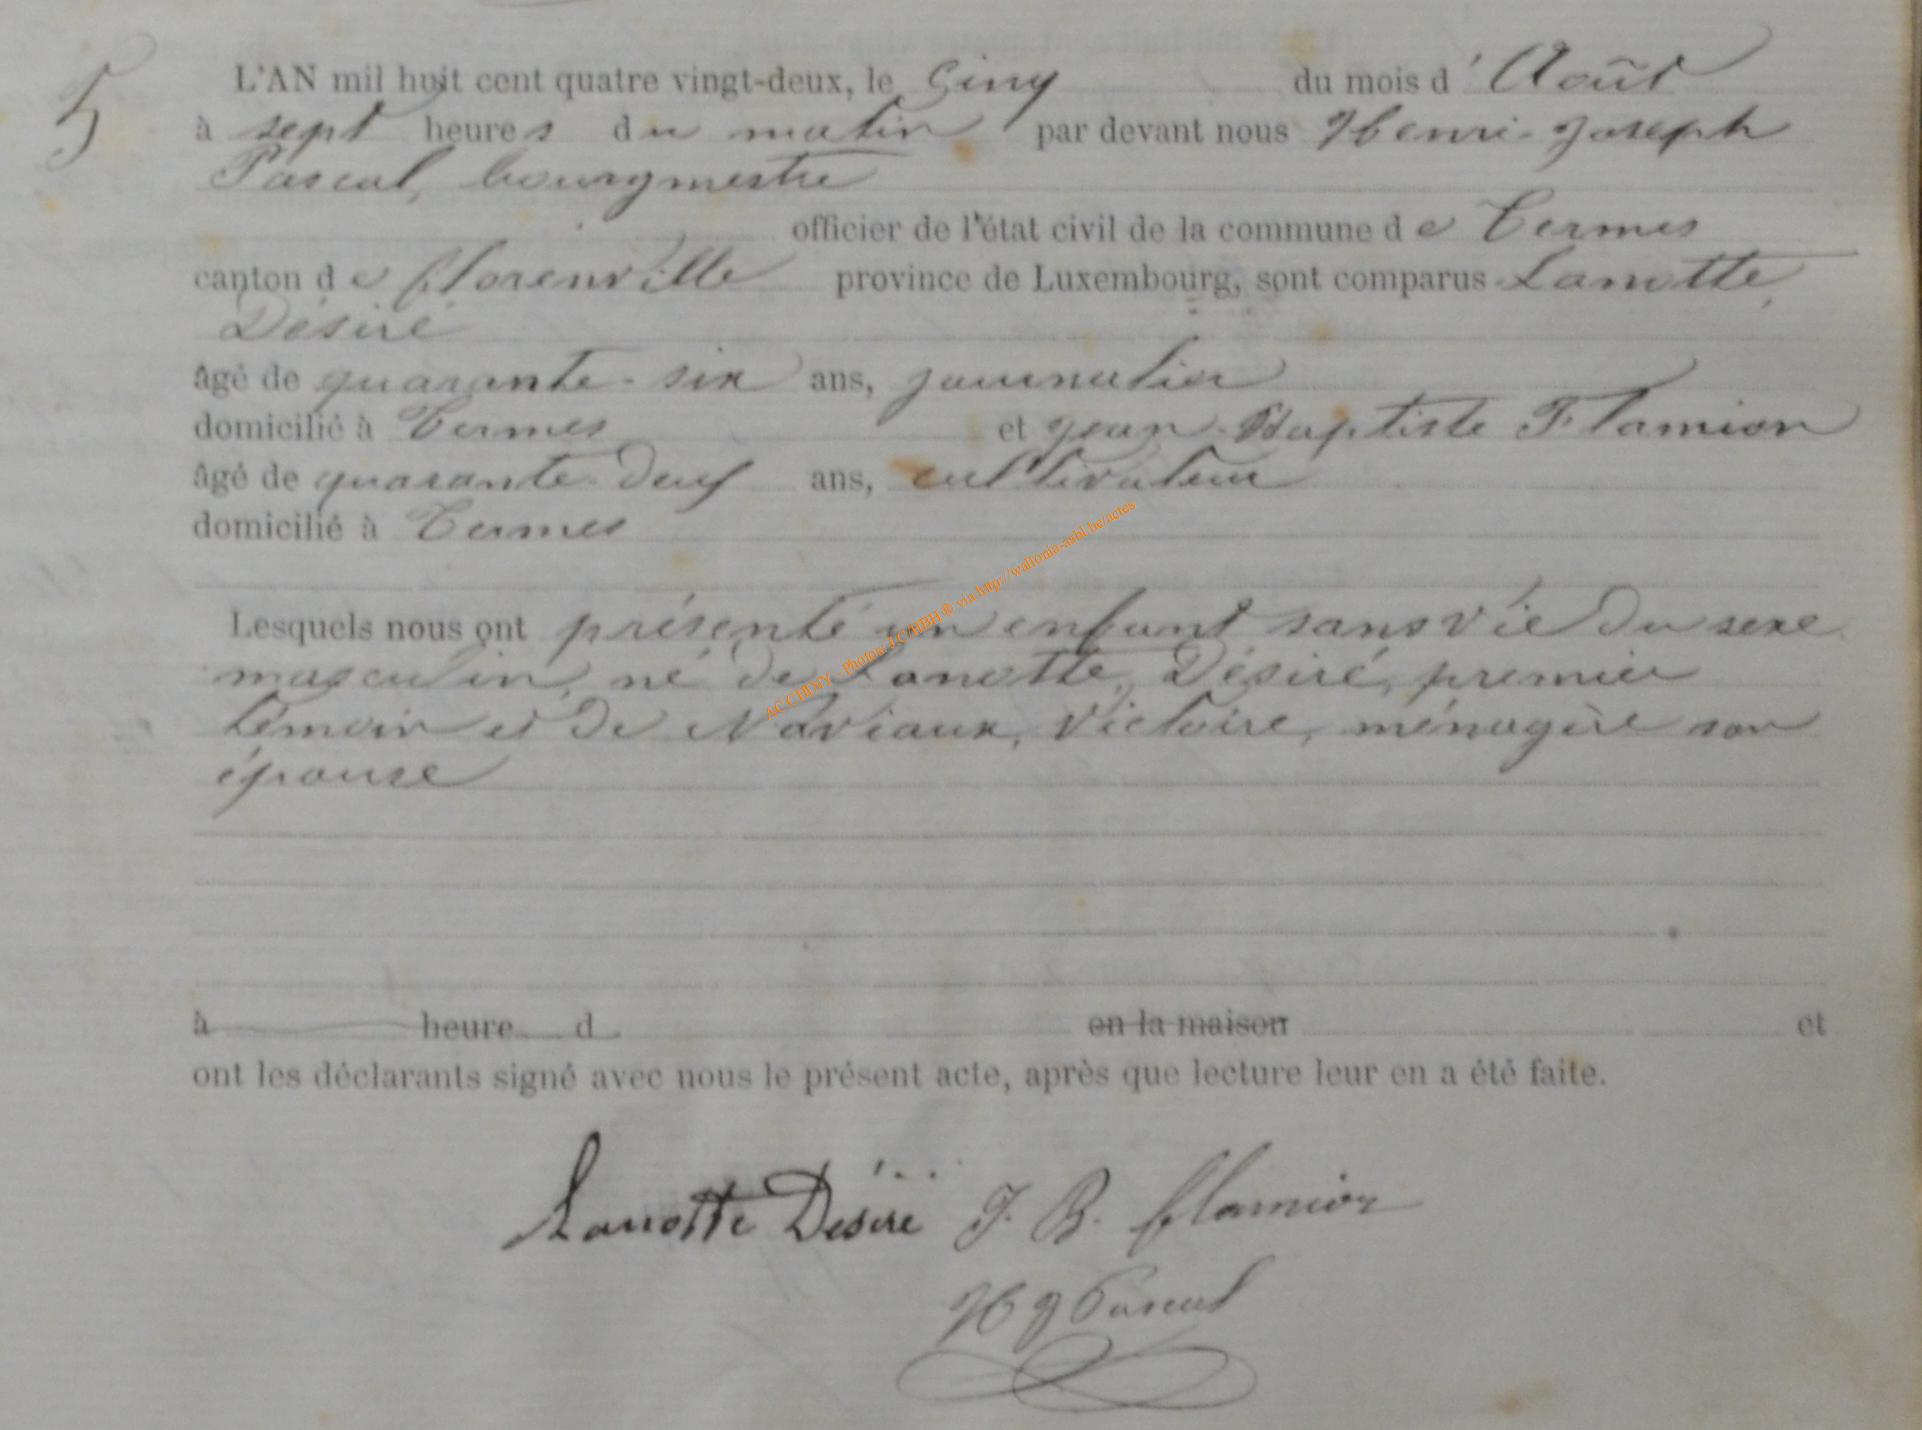 5
L'AN mil huit cent quatre vingt-deux, le Cinq du mois d' Août
à sept heures du matin par devant nous Henri-Joseph
Pascal, bourgmestre
officier de l'état civil de la commune de Termes
canton de florenville province de Luxembourg, sont comparus Lanotte,
Désiré
âgé de quarante-six ans, journalier
domicilié à Termes et Jean-Baptiste Flamion
âgé de quarante-deux ans, cultivateur
domicilié à Termes
Lesquels nous ont présenté un enfant sans vie du sexe
masculin, né de Lanotte, Désiré, premier
témoin et de Naviaux, Victoire, ménagère son
épouse
à heure d en la maison et
ont les déclarants signé avec nous le présent acte, après que lecture leur en a été faite.
Lanotte Désiré J. B. flamion
H J Pascal
AC CHINY - Photos: J.C HBH ® via http://wallonia-asbl.be/actes